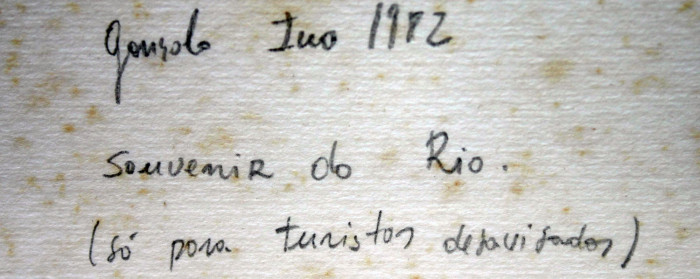 Gonçalo Ivo 1982
Souvenir do Rio.
(só para turistas desavisados)